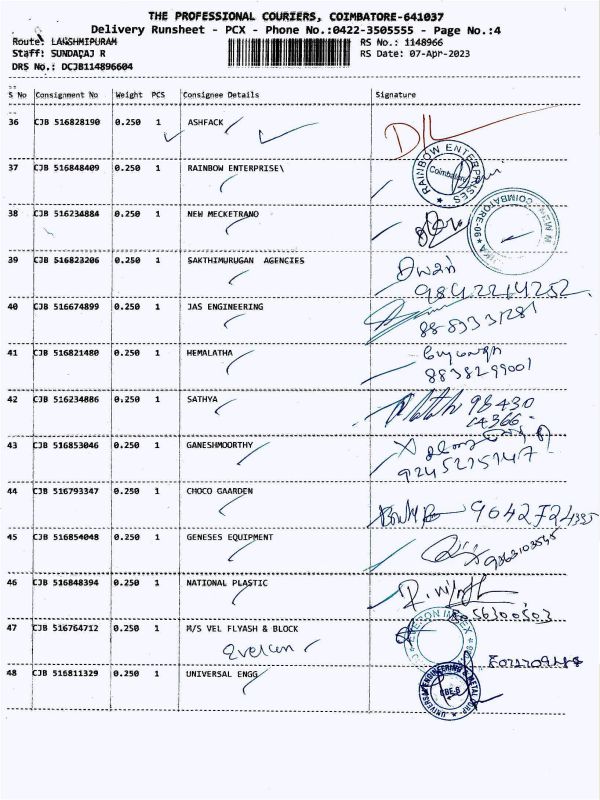 THE PROFESSIONAL COURIERS, COIMBATORE-641037
Delivery Runsheet - PCX - Phone No.:0422-3505555 - Page No.:4
Route: LAKSHMIPURAM RS No.: 1148966
Staff: SUNDAÇAJ R RS Date: 07-Apr-2023
DRS No.: DCJB114896604
S No Consignment No Weight PCS Consignee Details Signature
36 CJB 516828190 0.250 1 ASHFACK
37 CJB 516848409 0.250 1 RAINBOW ENTERPRISE\
RAINBOW ENTERPRISES
Coimbatore
38 CJB 516234884 0.250 1 NEW MECKETRANO
COIMBATORE-06
39 CJB 516823206 0.250 1 SAKTHIMURUGAN AGENCIES
9842214252
40 CJB 516674899 0.250 1 JAS ENGINEERING
41 CJB 516821480 0.250 1 HEMALATHA
8838299001
42 CJB 516234886 0.250 1 SATHYA
98430
14366
43 CJB 516853046 0.250 1 GANESHMOORTHY
44 CJB 516793347 0.250 1 CHOCO GAARDEN
45 CJB 516854048 0.250 1 GENESES EQUIPMENT
46 CJB 516848394 0.250 1 NATIONAL PLASTIC
47 CJB 516764712 0.250 1 M/S VEL FLYASH & BLOCK
48 CJB 516811329 0.250 1 UNIVERSAL ENGG
UNIVERSAL ENGINEERING & METAL CORP
CBE-6